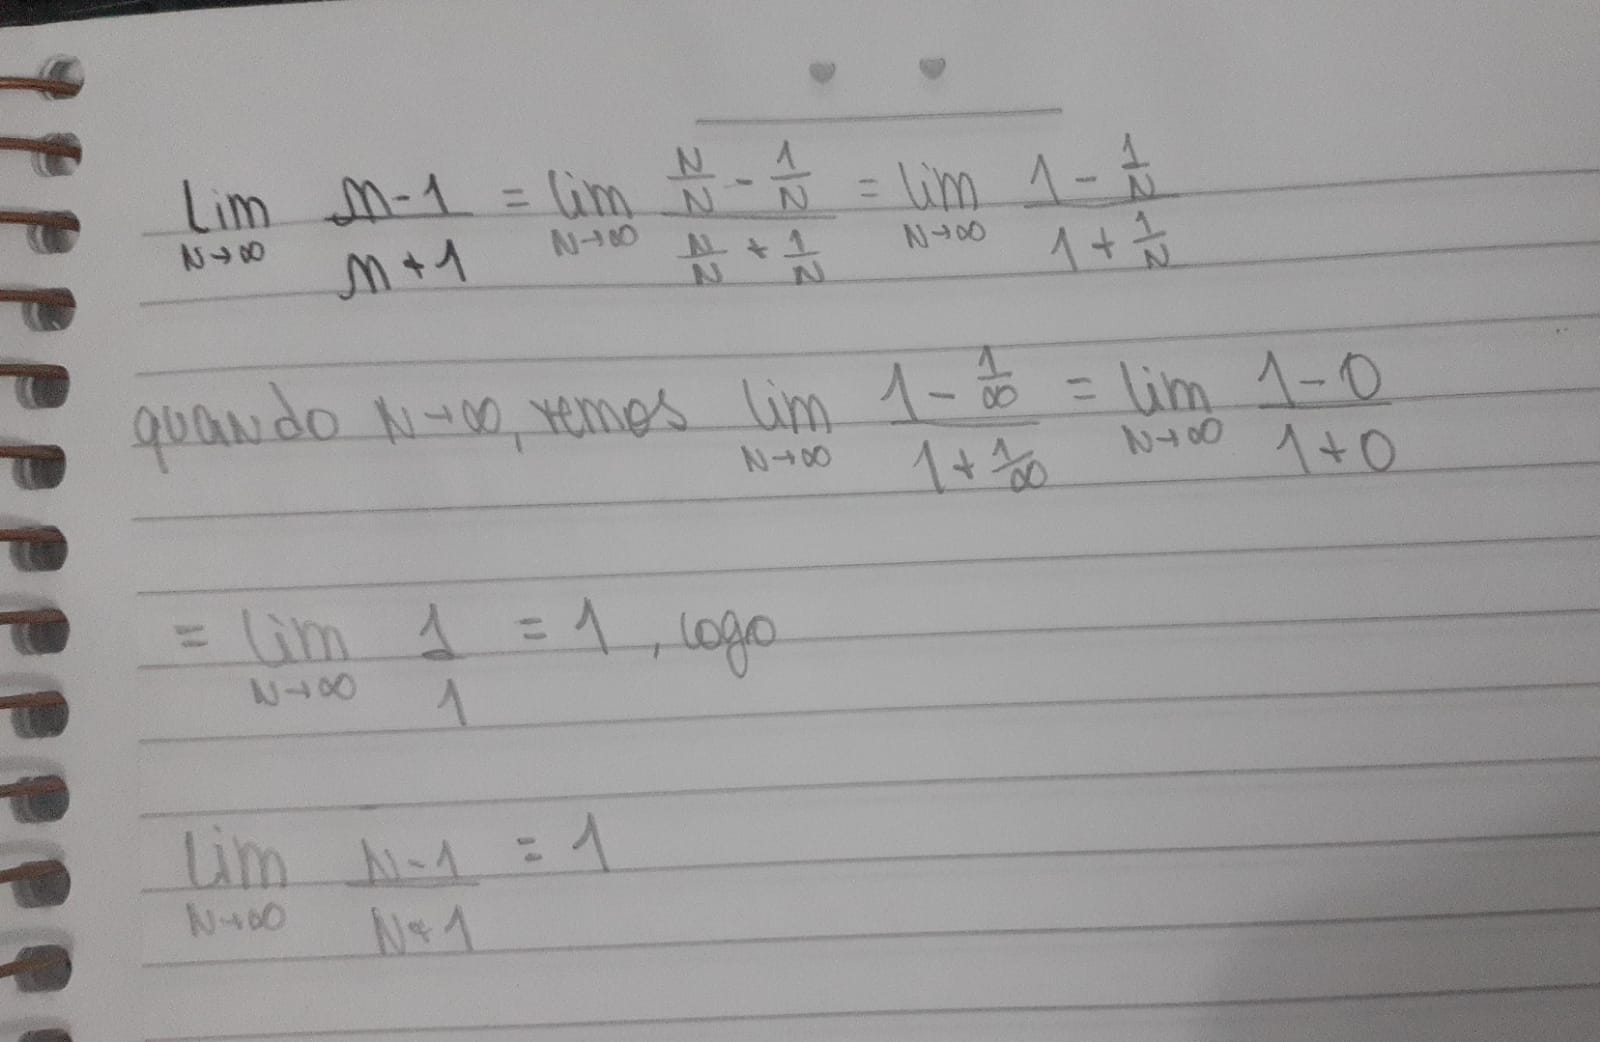 lim N→∞ n-1/n+1 = lim N→∞ (N/N - 1/N)/(N/N + 1/N) = lim N→∞ (1 - 1/N)/(1 + 1/N)
quando N→∞, temos lim N→∞ (1 - 1/∞)/(1 + 1/∞) = lim N→∞ (1-0)/(1+0)
= lim N→∞ 1/1 = 1, logo
lim N→∞ N-1/N+1 = 1